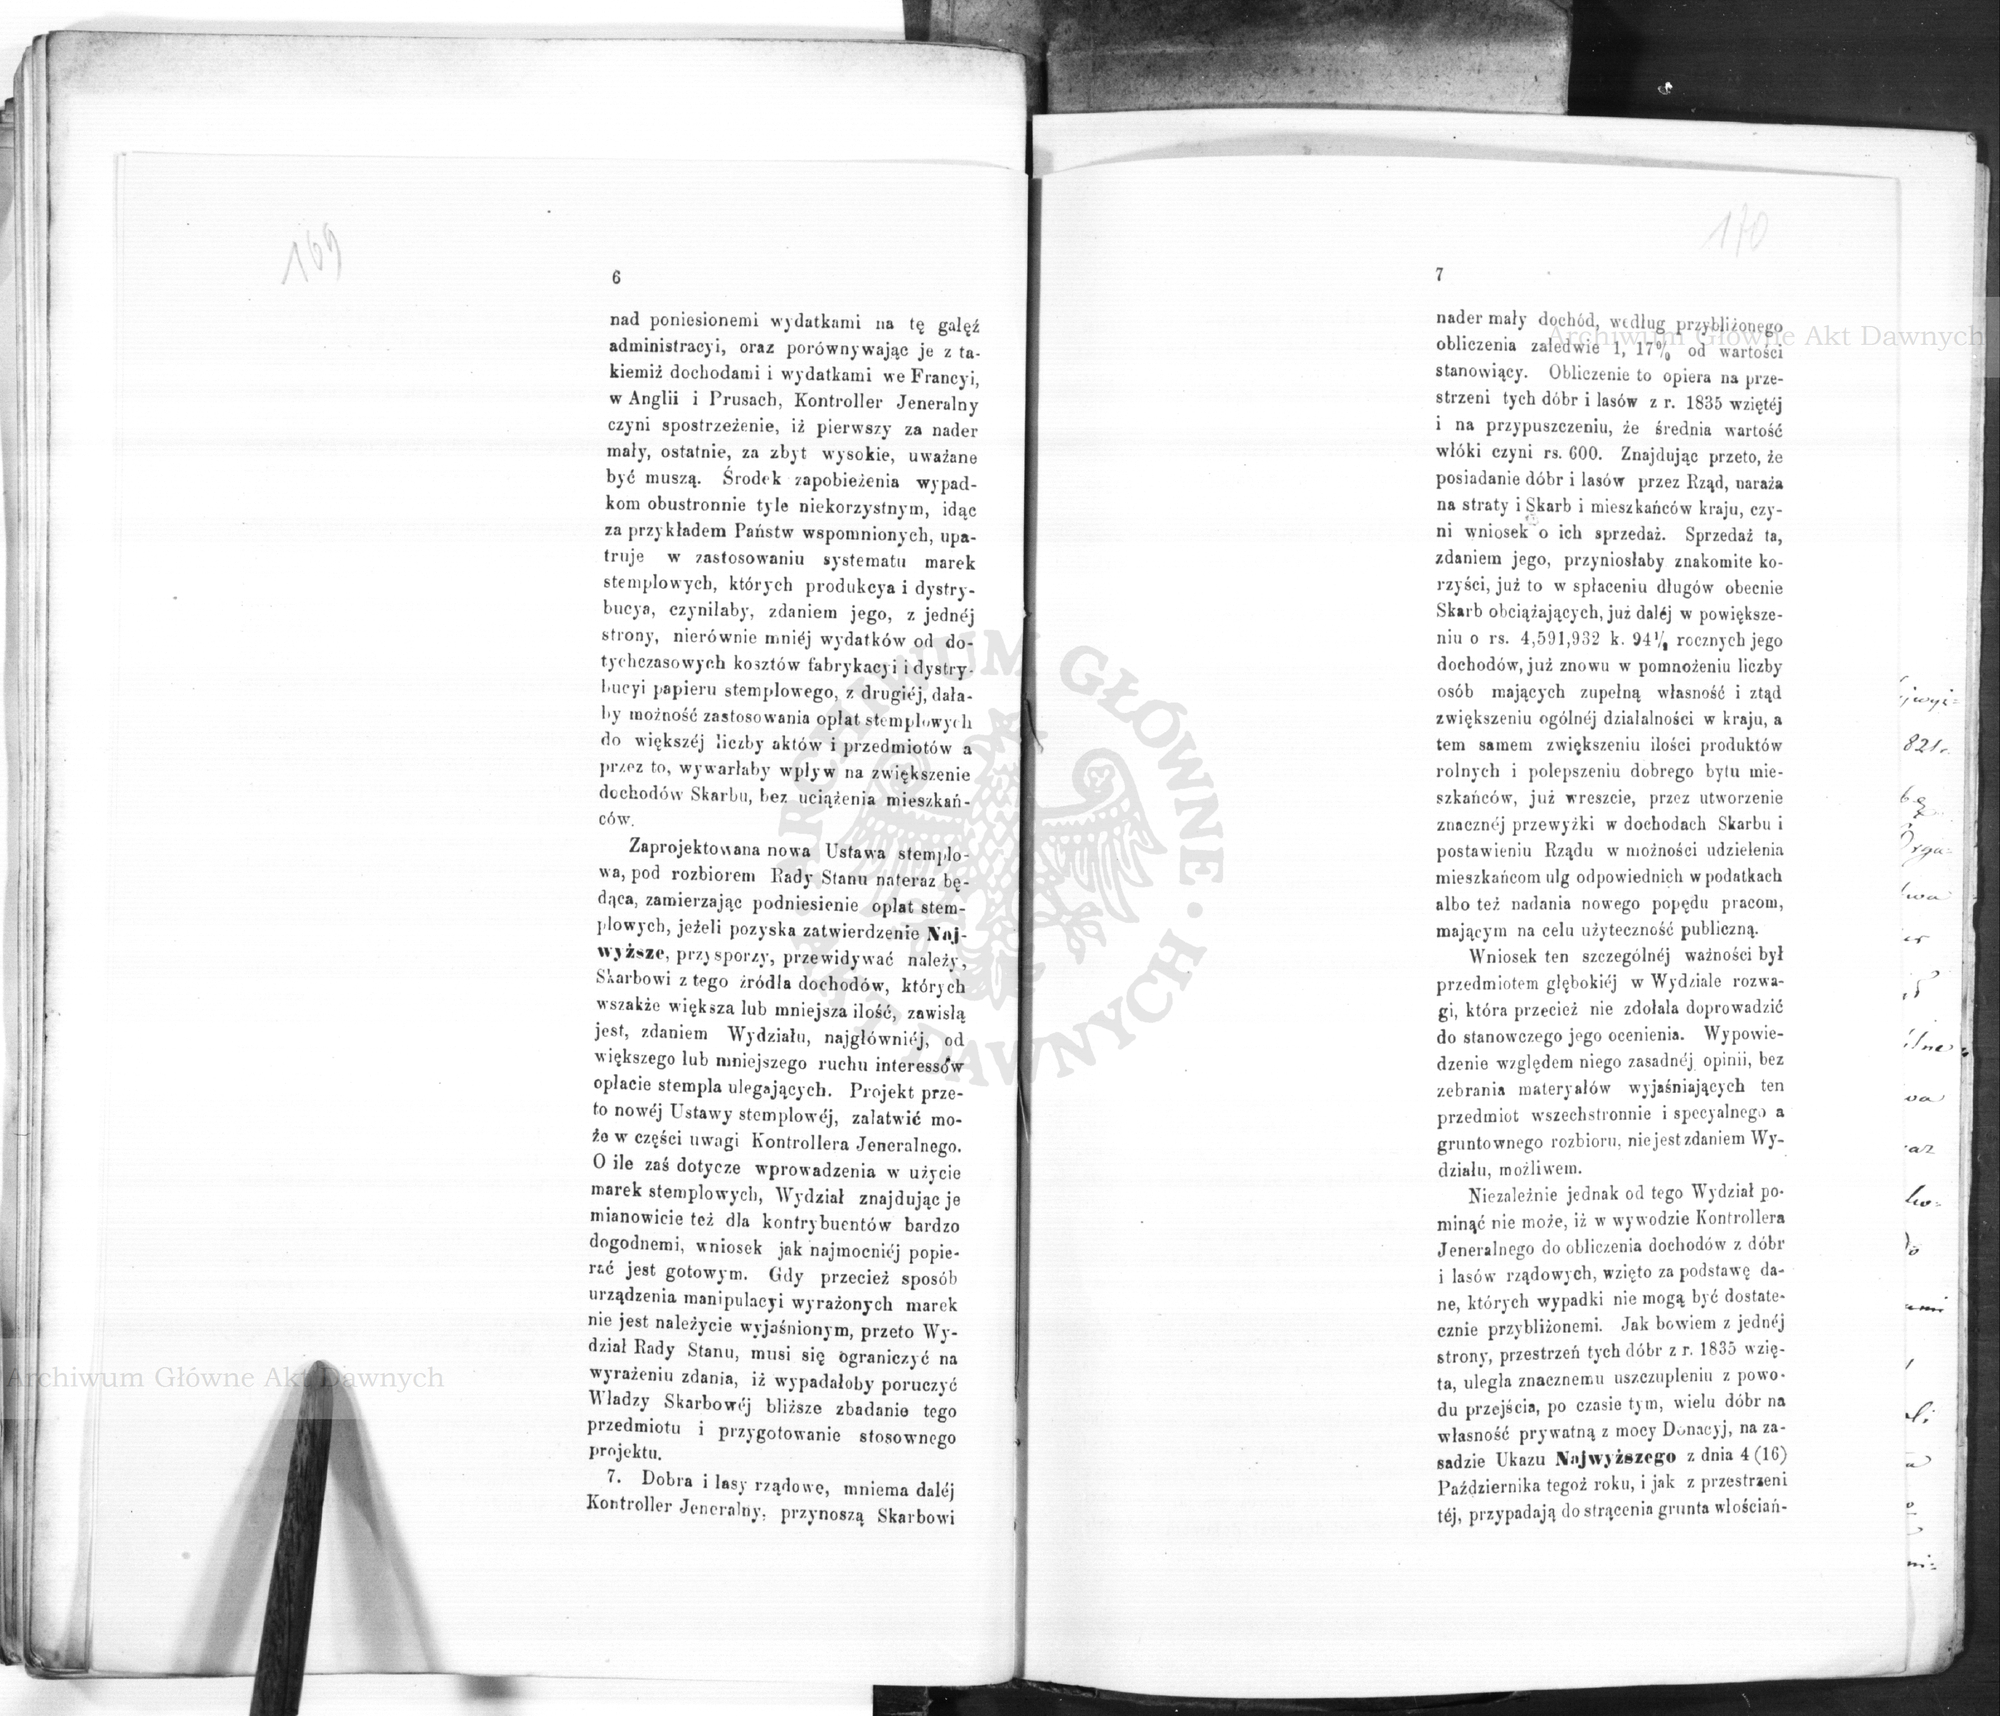 169
6
nad poniesionemi wydatkami na tę gałęź
administracyi, oraz porównywając je z ta-
kiemiż dochodami i wydatkami we Francyi,
w Anglii i Prusach, Kontroller Jeneralny
czyni spostrzeżenie, iż pierwszy za nader
mały, ostatnie, za zbyt wysokie, uważane
być muszą. Środek zapobieżenia wypad-
kom obustronnie tyle niekorzystnym, idąc
za przykładem Państw wspomnionych, upa-
truje w zastosowaniu systematu marek
stemplowych, których produkcya i dystry-
bucya, czyniłaby, zdaniem jego, z jednéj
strony, nierównie mniéj wydatków od do-
tychczasowych kosztów fabrykacyi i dystry-
bucyi papieru stemplowego, z drugiéj, dała-
by możność zastosowania opłat stemplowych
do większéj liczby aktów i przedmiotów a
przez to, wywarłaby wpływ na zwiększenie
dochodów Skarbu, bez uciążenia mieszkań-
ców.
Zaprojektowana nowa Ustawa stemplo-
wa, pod rozbiorem Rady Stanu nateraz bę-
dąca, zamierzając podniesienie opłat stem-
plowych, jeżeli pozyska zatwierdzenie Naj-
wyższe, przysporzy, przewidywać należy,
Skarbowi z tego źródła dochodów, których
wszakże większa lub mniejsza ilość, zawisłą
jest, zdaniem Wydziału, najgłówniéj, od
większego lub mniejszego ruchu interessów
opłacie stempla ulegających. Projekt prze-
to nowéj Ustawy stemplowéj, załatwić mo-
że w części uwagi Kontrollera Jeneralnego.
O ile zaś dotycze wprowadzenia w użycie
marek stemplowych, Wydział znajdując je
mianowicie też dla kontrybuentów bardzo
dogodnemi, wniosek jak najmocniéj popie-
rać jest gotowym. Gdy przecież sposób
urządzenia manipulacyi wyrażonych marek
nie jest należycie wyjaśnionym, przeto Wy-
dział Rady Stanu, musi się ograniczyć na
wyrażeniu zdania, iż wypadałoby poruczyć
Władzy Skarbowéj bliższe zbadanie tego
przedmiotu i przygotowanie stosownego
projektu.
7. Dobra i lasy rządowe, mniema daléj
Kontroller Jeneralny, przynoszą Skarbowi
170
7
nader mały dochód, według przybliżonego
obliczenia zaledwie 1, 17% od wartości
stanowiący. Obliczenie to opiera na prze-
strzeni tych dóbr i lasów z r. 1835 wziętéj
i na przypuszczeniu, że średnia wartość
włóki czyni rs. 600. Znajdując przeto, że
posiadanie dóbr i lasów przez Rząd, naraża
na straty i Skarb i mieszkańców kraju, czy-
ni wniosek o ich sprzedaż. Sprzedaż ta,
zdaniem jego, przyniosłaby znakomite ko-
rzyści, już to w spłaceniu długów obecnie
Skarb obciążających, już daléj w powiększe-
niu o rs. 4,591,932 k. 94½ rocznych jego
dochodów, już znowu w pomnożeniu liczby
osób mających zupełną własność i ztąd
zwiększeniu ogólnéj działalności w kraju, a
tem samem zwiększeniu ilości produktów
rolnych i polepszeniu dobrego bytu mie-
szkańców, już wreszcie, przez utworzenie
znacznéj przewyżki w dochodach Skarbu i
postawieniu Rządu w możności udzielenia
mieszkańcom ulg odpowiednich w podatkach
albo też nadania nowego popędu pracom,
mającym na celu użyteczność publiczną.
Wniosek ten szczególnéj ważności był
przedmiotem głębokiéj w Wydziale rozwa-
gi, która przecież nie zdołała doprowadzić
do stanowczego jego ocenienia. Wypowie-
dzenie względem niego zasadnéj opinii, bez
zebrania materyałów wyjaśniających ten
przedmiot wszechstronnie i specyalnego a
gruntownego rozbioru, nie jest zdaniem Wy-
działu, możliwem.
Niezależnie jednak od tego Wydział po-
minąć nie może, iż w wywodzie Kontrollera
Jeneralnego do obliczenia dochodów z dóbr
i lasów rządowych, wzięto za podstawę da-
ne, których wypadki nie mogą być dostate-
cznie przybliżonemi. Jak bowiem z jednéj
strony, przestrzeń tych dóbr z r. 1835 wzię-
ta, uległa znacznemu uszczupleniu z powo-
du przejścia, po czasie tym, wielu dóbr na
własność prywatną z mocy Donacyj, na za-
sadzie Ukazu Najwyższego z dnia 4 (16)
Października tegoż roku, i jak z przestrzeni
téj, przypadają do strącenia grunta włościań-
Archiwum Główne Akt Dawnych
Archiwum Główne Akt Dawnych
ARCHIWUM GŁÓWNE AKT DAWNYCH